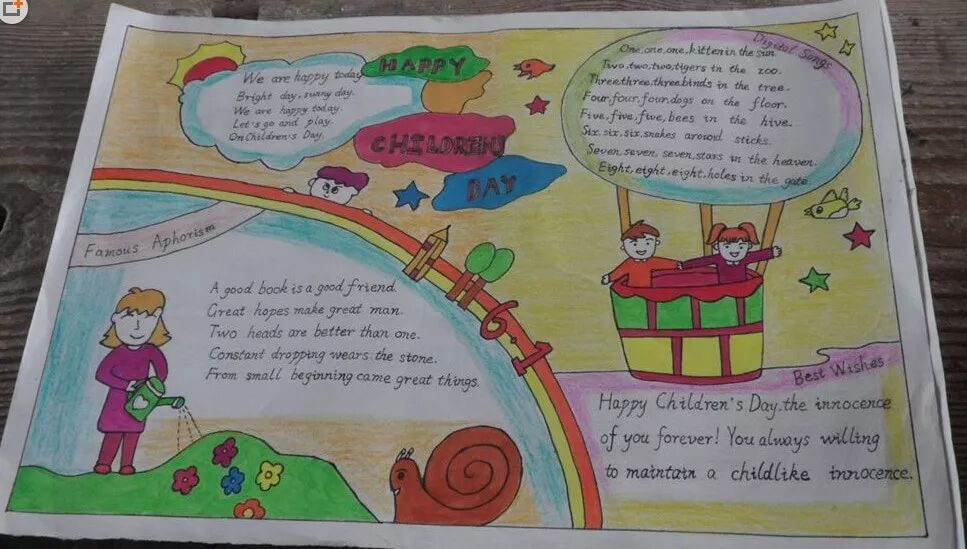 We are happy today
Bright day, sunny day.
We are happy today.
Let's go and play.
On Children's Day.
HAPPY
CHILDREN'S
DAY
Digital Songs
One, one, one, kitten in the sun.
Two, two, two, tigers in the zoo.
Three, three, three, binds in the tree.
Four, four, four, dogs on the floor.
Five, five, five, bees in the hive.
Six, six, six, snakes around sticks.
Seven, seven, seven, stars in the heaven.
Eight, eight, eight, holes in the gate
Famous Aphorism
A good book is a good friend.
Great hopes make great man.
Two heads are better than one.
Constant dropping wears the stone.
From small beginning came great things.
6.1
Best Wishes
Happy Children's Day, the innocence
of you forever! You always willing
to maintain a childlike innocence.